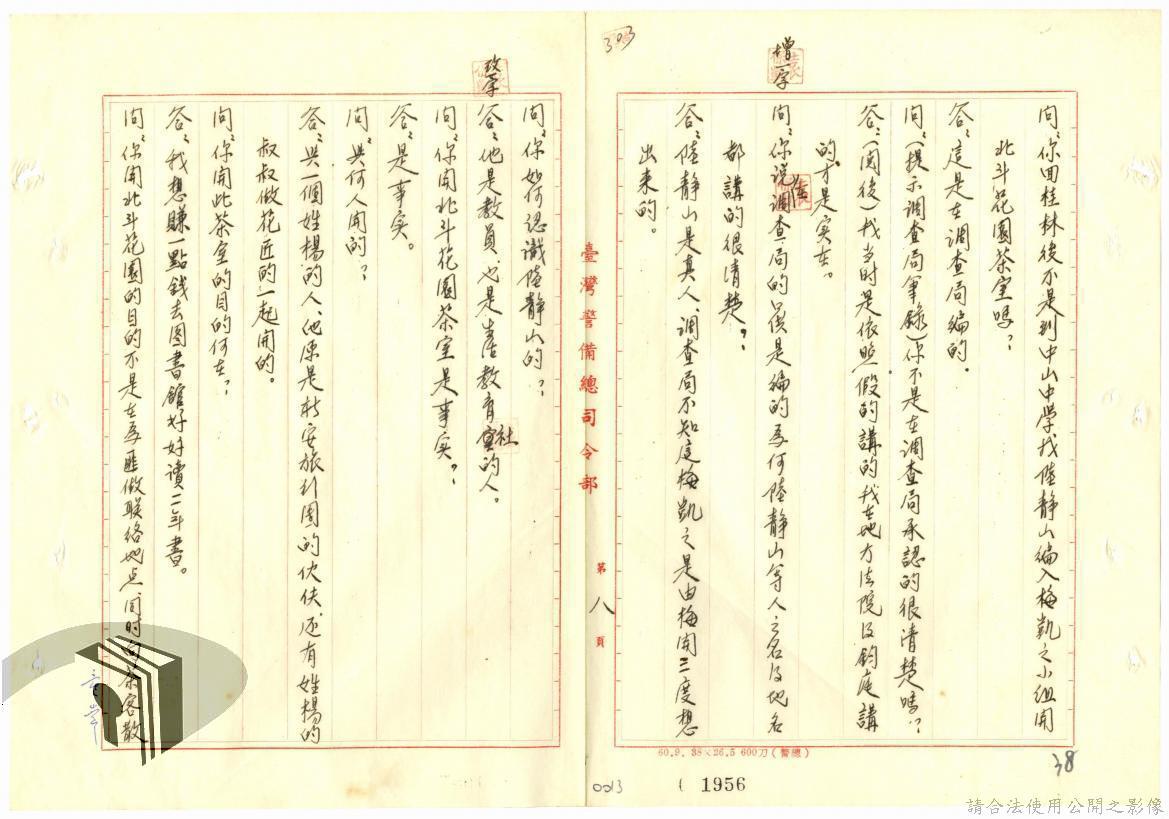 問:你回桂林後不是到中山中學找陸静山編入梅凱之小组開
北斗花園茶室嗎?
答:這是在調查局編的。
問:(提示調查局筆錄)你不是在調查局承認的很清楚嗎?
答:(閱後)我当时是依照假的講的我在地方法院及鈞庭講
的才是实在。
問:你说調查局的供是編的为何陸静山等人之名及地名
都講的很清楚?
答:陸静山是真人、調查局不知庭梅凱之是由梅開三度想
出来的。
增一字
303
臺灣警備總司令部
第八頁
60.9. 38×26.5 600刀(警總)
38
1956
0013
問:你如何認識陸静山的?
答:他是教員也是生活教育社的人。
改一字
問:你開北斗花園茶室是事实?
答:是事实。
問:與何人開的?
答:與一個姓楊的人、他原是新安旅行團的伙伕、还有姓楊的
叔叔做花匠的一起開的。
問:你開此茶室的目的何在?
答:我想賺一點錢去图書館好好讀一二年書。
問:你開北斗花園的目的不是在为匪做联络地点、同时向茶客散
請合法使用公開之影像